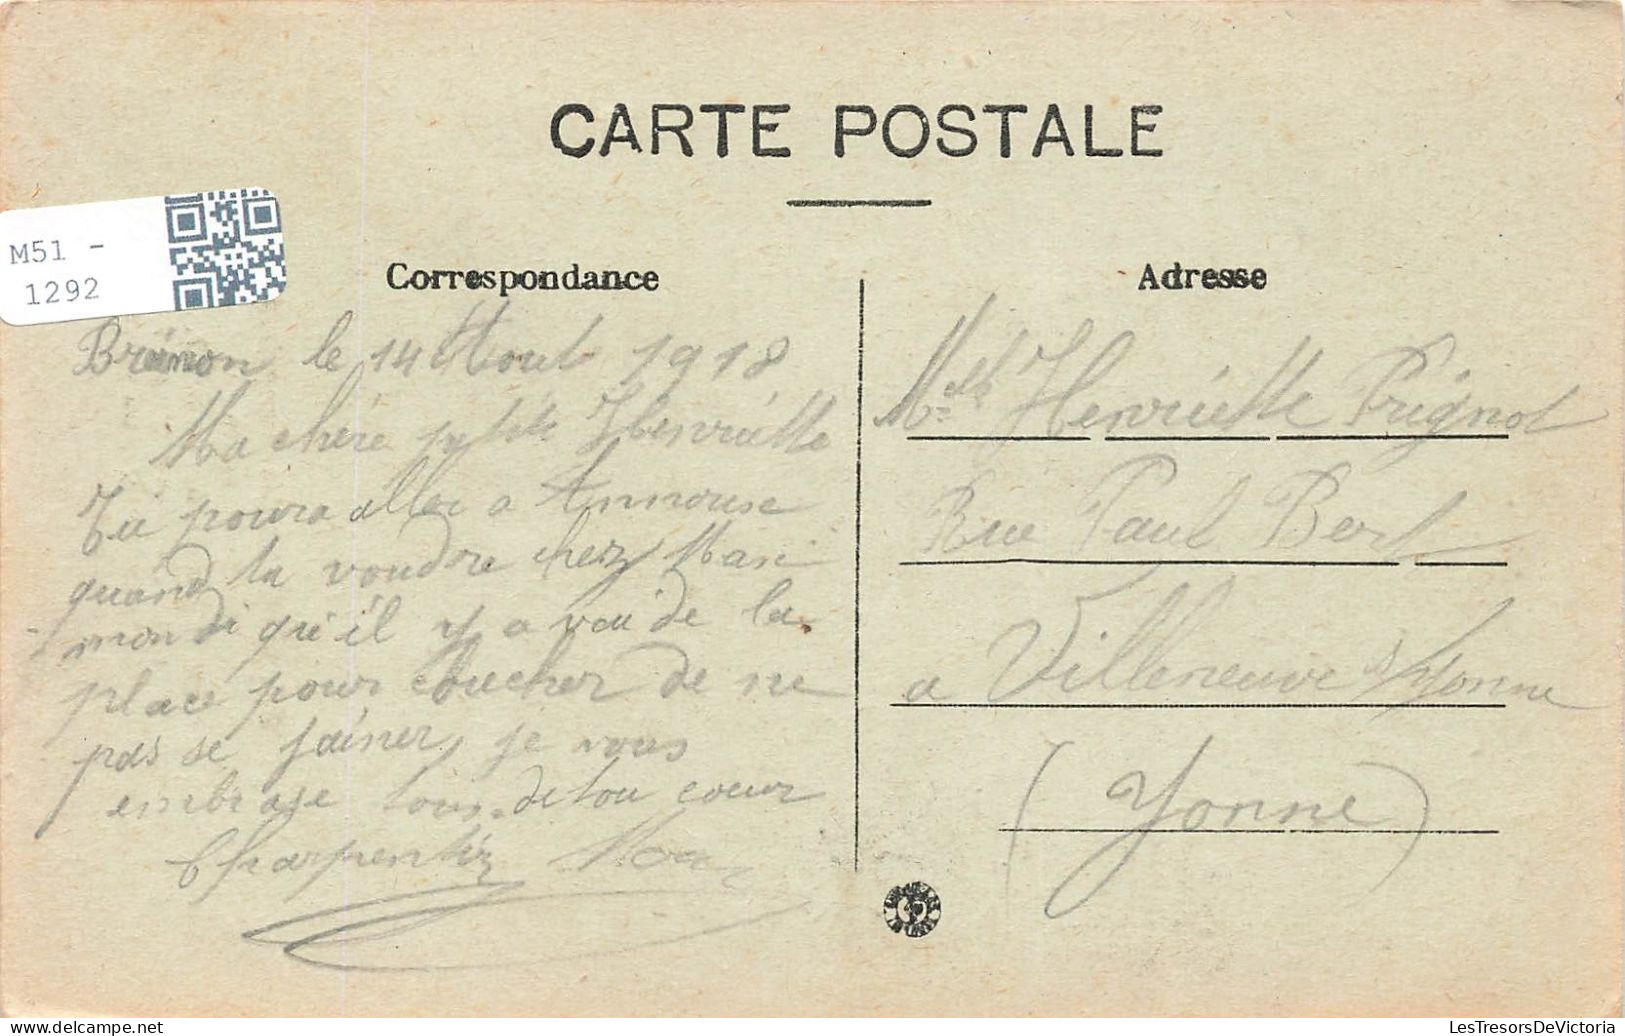 CARTE POSTALE
M51 -
1292
Correspondance
Brinon le 14 Aout 1918
Ma chére petite Henriette
Tu poura aller a
quand tu voudra chez
mondi qu'il y a de la
place pour coucher de ne
pas se jainer, je vous
embrase tous de tou coeur
Charpentier
Adresse
Mlle Henriette Prignot
Rue Paul Bert
a Villeneuve s/Yonne
(Yonne)
LesTresorsDeVictoria
www.delcampe.net